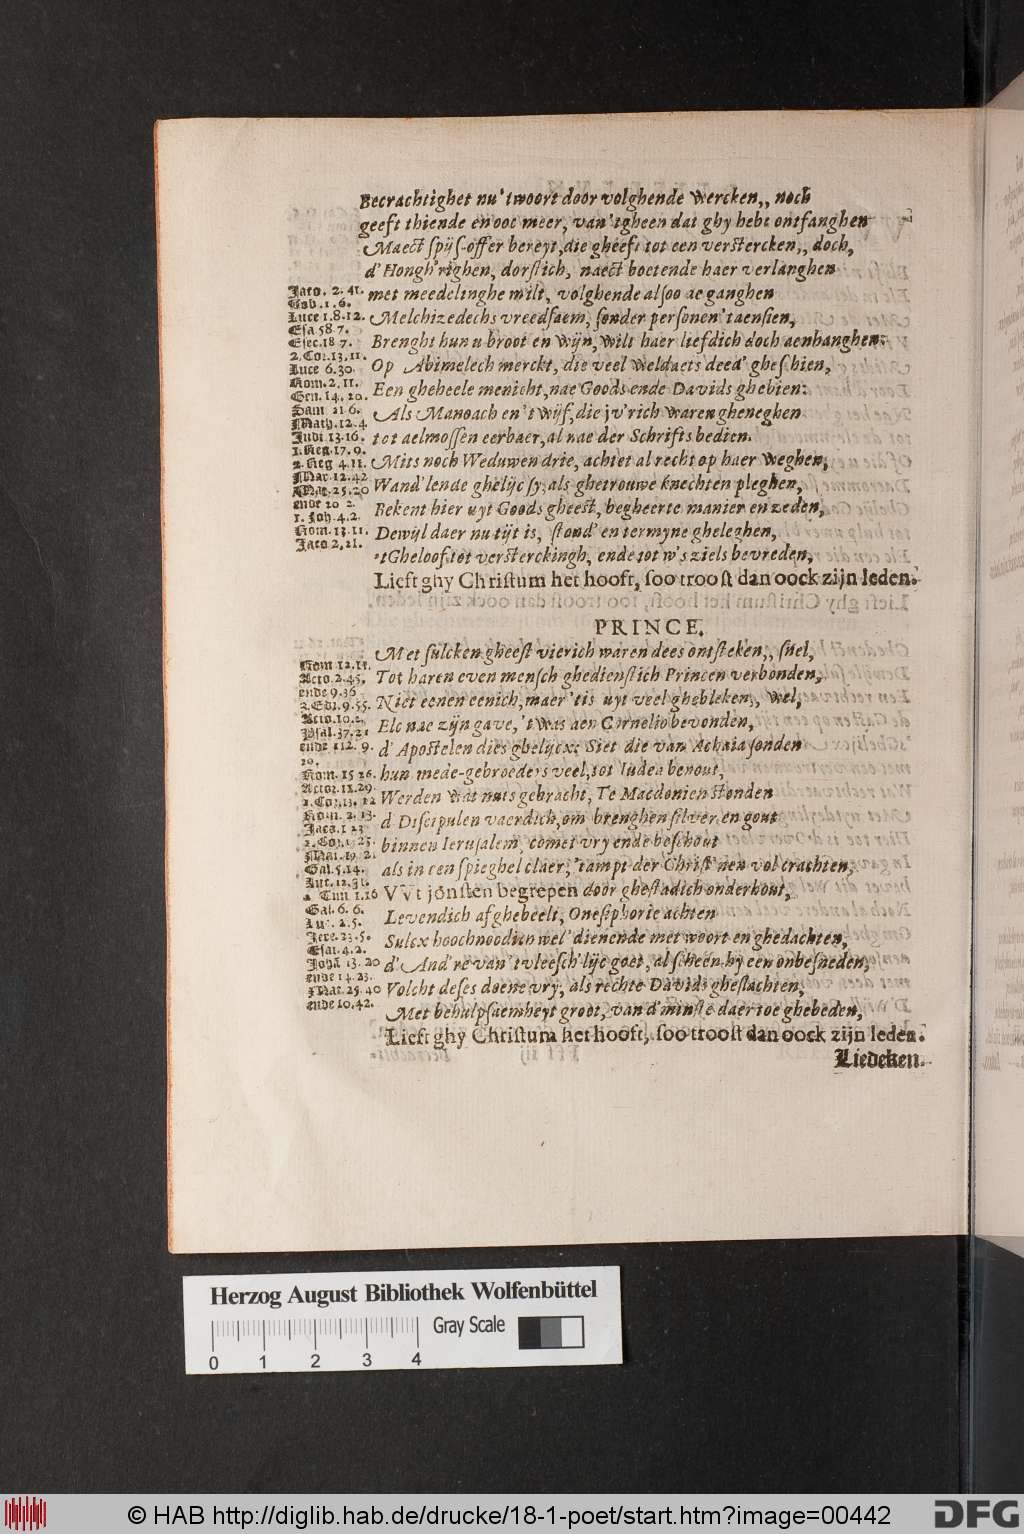 Becrachtighet nu 't woort door volghende wercken,, noch
geeft thiende en ooc meer, van 'tgheen dat ghy hebt ontfanghen
Maect spijs-offer bereyt, die gheeft tot een verstercken,, doch,
d'Hongh'righen, dorstich, naect boetende haer verlanghen
met meedelinghe milt, volghende alsoo de ganghen
Melchizedechs vreedsaem, sonder personen 't aensien,
Brenght hun u broot en wijn, wilt haer liefdich doch aenhanghen:
Op Abimelech merckt, die veel weldaets deed' gheschien,
Een gheheele menicht, nae Goods ende Davids ghebien:
Als Manoach en 't wijf, die jv'rich waren gheneghen
tot aelmossen eerbaer, al nae der Schrifts bedien.
Mits noch Weduwen drie, achtet al recht op haer weghen,
Wand'lende ghelijc sy, als ghetrouwe knechten pleghen,
Bekent hier uyt Goods gheest, begheerte manier en zeden,
Dewijl daer nu tijt is, stond' en termyne gheleghen,
'tGheloof tot versterckingh, ende tot w's ziels bevreden,
Lieft ghy Christum het hooft, soo troost dan oock zijn leden.
Jaco. 2. 41.
Tob. 1. 6.
Luce 1. 8. 12.
Esa 58 7.
Esec. 18 7.
2. Co: 13. 11.
Luce 6. 30
Rom. 2. 11.
Gen. 14. 20.
Sam 21 6.
Math. 12. 4
Judi 13. 16.
1. Reg. 17. 9.
2. Reg 4. 11.
Mar. 12. 42
Mat. 25. 20
ende 20 2.
1. Joh. 4. 2.
Rom. 13. 11.
Jaco 2. 21.
PRINCE.
Met sulcken gheest vierich waren dees ontsteken,, snel,
Tot haren even mensch ghedienstich Princen verbonden,
Niet eenen eenich, maer 'tis uyt veel ghebleken,, wel,
Elc nae zijn gave, 't was aen Cornelio bevonden,
d'Apostelen dies ghelijcx: Siet die van Achaia sonden
hun mede-gebroeders veel, tot Iudea benout,
Werden wat nuts gebracht, Te Macdonien stonden
d'Discipulen vaerdich, om brenghen silver en gout
binnen Ierusalem, comet vry ende beschout
als in een spieghel claer, 'tampt der Christ'nen vol crachten,
Vvt jonsten begrepen door ghestadich onderhout,
Levendich afghebeelt, Onesiphorie achten
Sulcx hoochnoodich wel' dienende met woort en ghedachten,
d'And're van 'tvleesch'lijc goet, al scheen hy een onbesneden,
Volcht deses doene vry, als rechte Davids gheslachten,
Met behulpsaemheyt groot, van d'minste daer toe ghebeden,
Lieft ghy Christum het hooft, soo troost dan oock zijn leden.
Rom 12. 11.
Acto. 2. 45.
ende 9. 36
Acto. 10. 2
Psal. 37. 21
ende 112. 9.
20.
Rom. 15 26.
Actoz. 11. 29.
1. Coz. 13. 12
Rom. 2. 13.
Jaco. 1 23
2. Coz. 1. 25.
Mat. 19. 21
Gal. 5. 14.
Luc. 12. 31.
2 Tim 1. 16
Gal. 6. 6.
Luc. 2. 5.
Jere. 23. 5.
Esai. 4. 2.
Johā 13. 20
ende 14. 23.
Mat. 25. 40
ende 10. 42.
Liedeken.
Herzog August Bibliothek Wolfenbüttel
Gray Scale
0 1 2 3 4
© HAB http://diglib.hab.de/drucke/18-1-poet/start.htm?image=00442
DFG